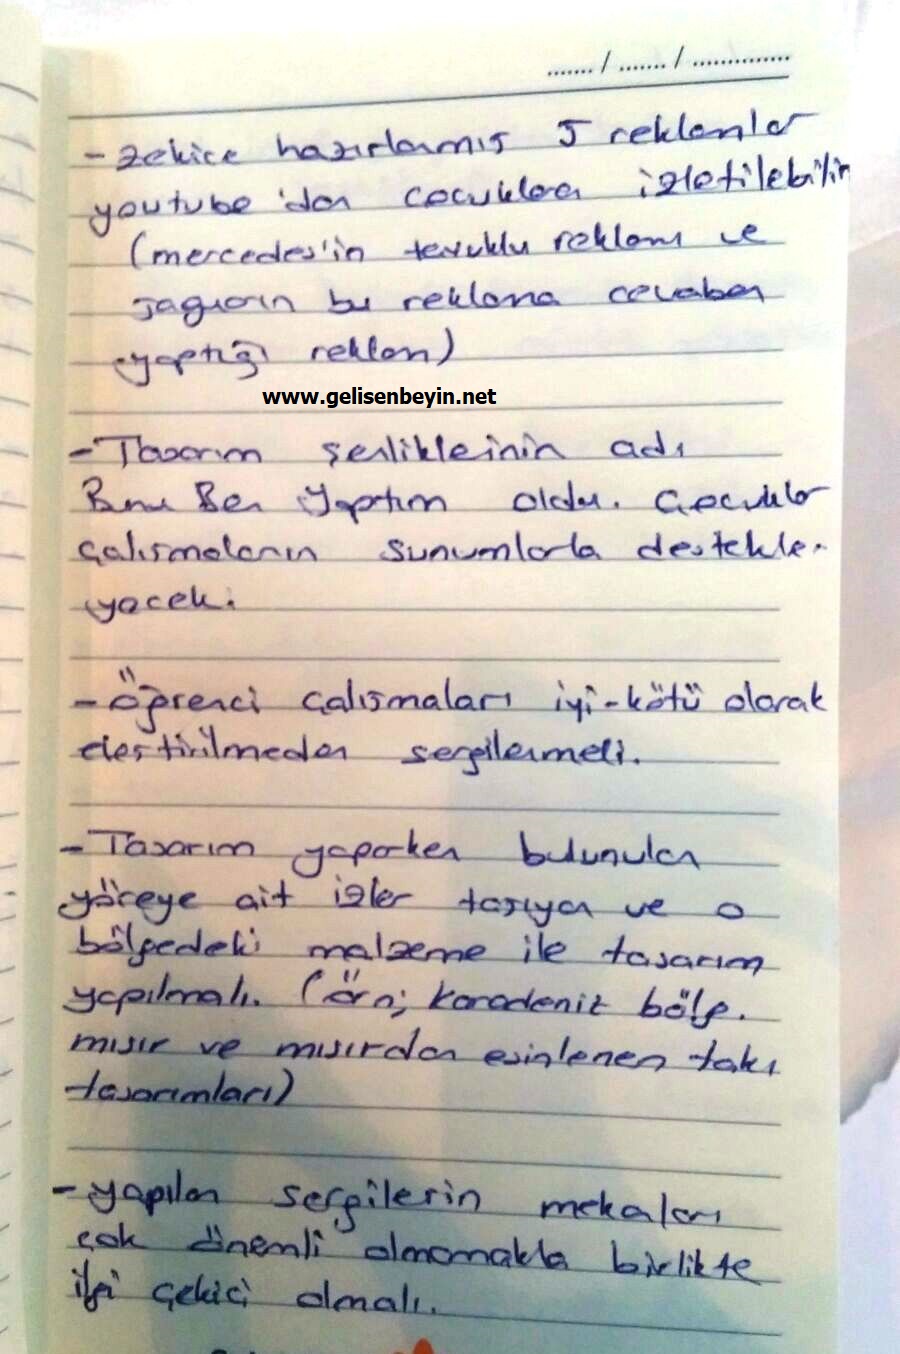 ....... / ....... / ..............
- zekice hazırlanmış 5 reklamlar
youtube'dan çocuklara izletilebilir
(mercedes'in tavuklu reklamı ve
jaguarın bu reklama cevaben
yaptığı reklam)
www.gelisenbeyin.net
- Tasarım şenliklerinin adı
Bunu Ben Yaptım oldu. Çocuklar
çalışmalarını sunumlarla destekle-
yecek.
- Öğrenci çalışmaları iyi-kötü olarak
eleştirilmeden sergilenmeli.
- Tasarım yaparken bulunulan
yöreye ait izler taşıyan ve o
bölgedeki malzeme ile tasarım
yapılmalı. (örn; karadeniz bölg.
mısır ve mısırdan esinlenen takı
tasarımları)
- yapılan sergilerin mekanları
çok önemli olmamakla birlikte
ilgi çekici olmalı.